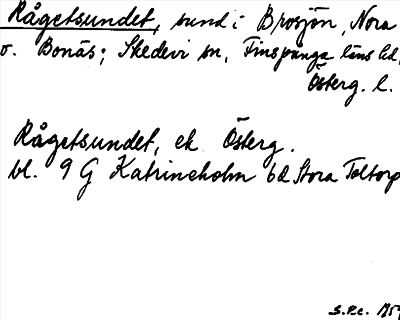 Rågetsundet, sund i Brosjön, Nora
o. Bonäs; Skedevi sn, Finspånga läns hd,
Österg. l.
Rågetsundet, ek. Österg.
bl. 9 G Katrineholm 6d Stora Toltorp
S.P.C.